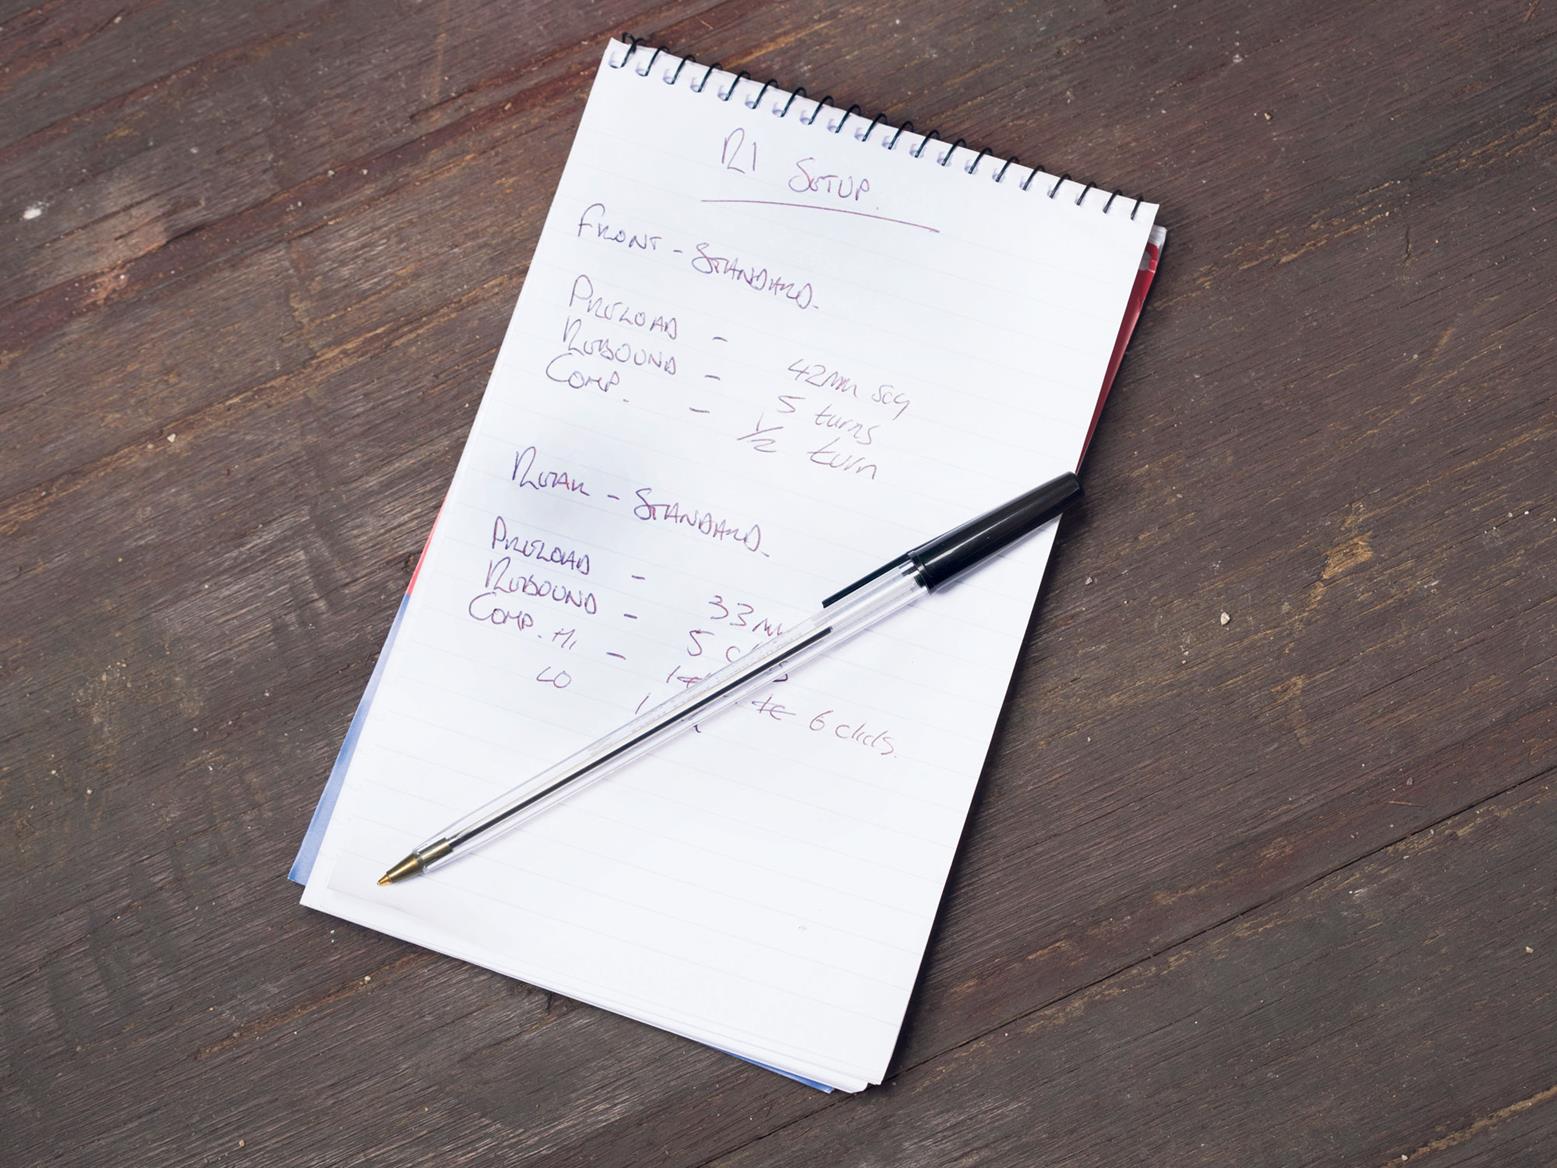 R1 SETUP.
FRONT - STANDARD.
PRELOAD - 42mm sag
REBOUND - 5 turns
COMP. - 1/2 turn
REAR - STANDARD.
PRELOAD - 33mm
REBOUND - 5
COMP. HI -
LO 6 clicks.